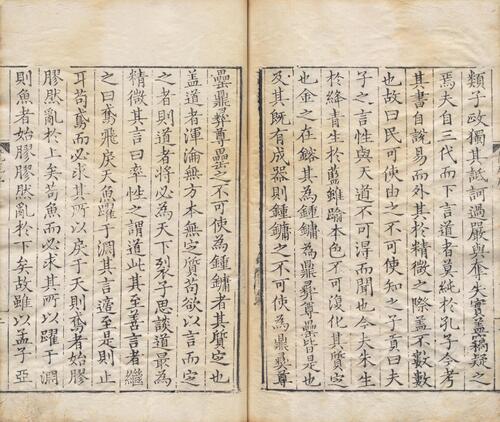 類子政獨其詆訶過嚴與奪失實蓋竊疑之
焉夫自三代而下言道者莫純於孔子今考
其書自說易而外其於精微之際蓋不數數
也故曰民可使由之不可使知之子貢曰夫
子之言性與天道不可得而聞也今夫朱生
於絳青生於藍雖踰本色不可復化其質定
也金之在鎔其為鍾鏞為鼎彛尊罍皆是也
及其既有成器則鍾鏞之不可使為鼎彛尊
罍鼎彛尊罍之不可使為鍾鏞者其質定也
蓋道者渾淪無方本無定質苟欲以言而定
之者則道者將必為天下裂子思談道最為
精微其言曰率性之謂道此其至善言者繼
之曰鳶飛戾天魚躍于淵其言適至是則止
耳苟鳶而必求其所以戾于天則鳶者始膠
膠然亂於上矣苟魚而必求其所以躍于淵
則魚者始膠膠然亂於下矣故雖以孟子亞